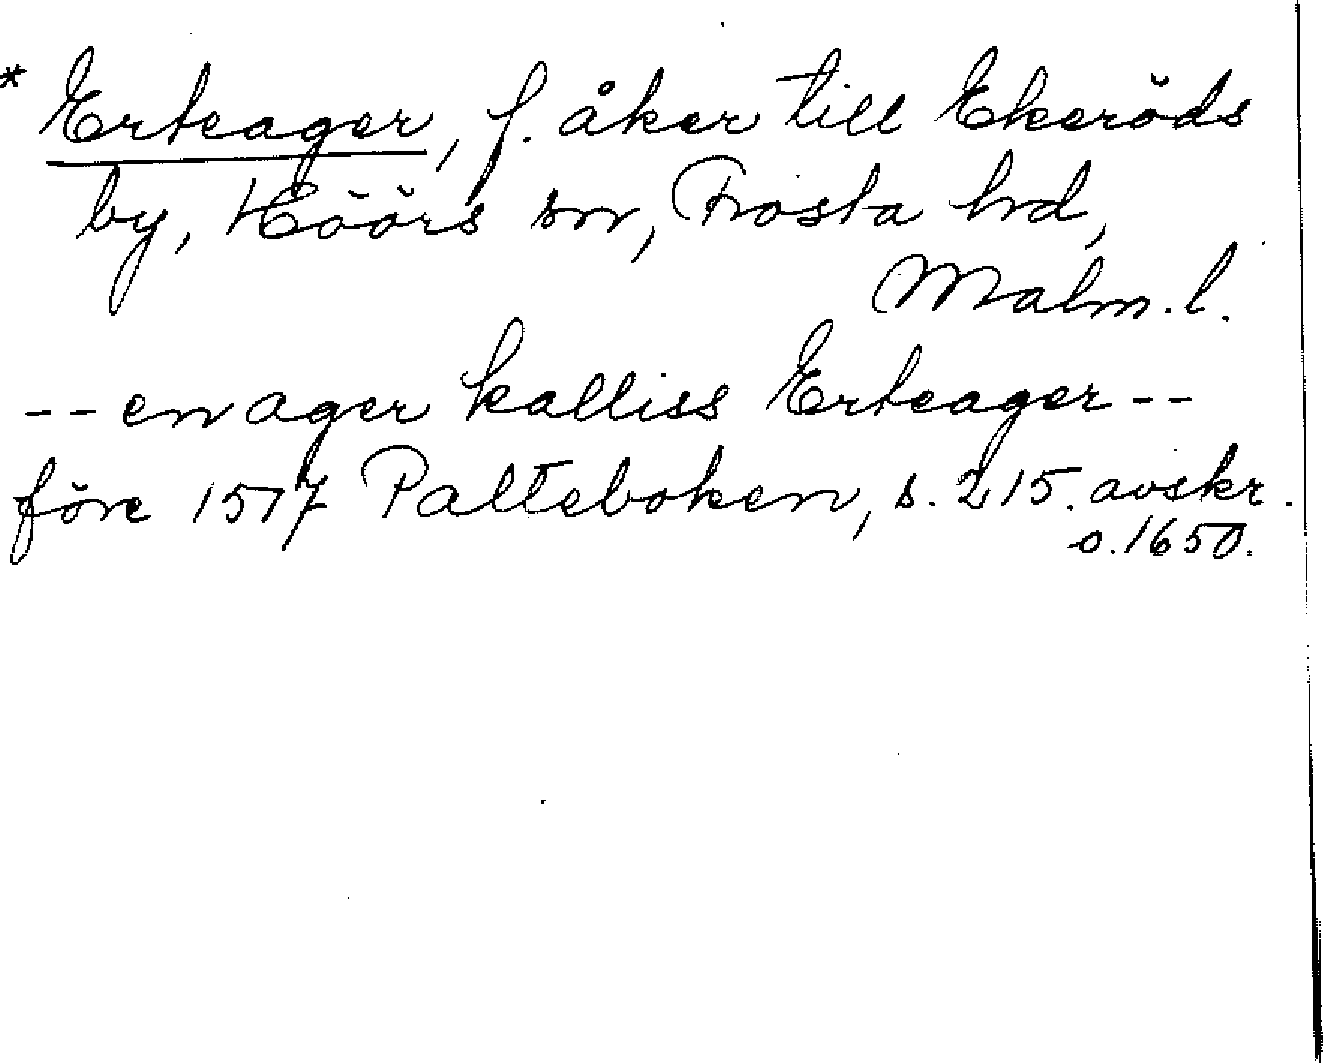 * Erteager, f. åker till Ekeröds
by, Höörs sn, Frosta hd,
Malm. l.
-- en ager kalliss Erteager --
före 1517 Palteboken, s. 215. avskr.
o. 1650.